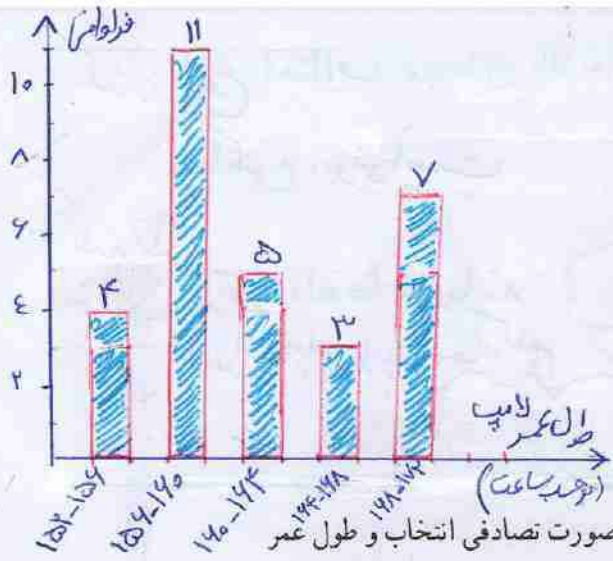 فراوانی
۱۱
۱۰
۸
۷
۶
۵
۴
۴
۳
۲
طول عمر لامپ
(بر حسب ساعت)
۱۵۲-۱۵۶
۱۵۶-۱۶۰
۱۶۰-۱۶۴
۱۶۴-۱۶۸
۱۶۸-۱۷۲
صورت تصادفی انتخاب و طول عمر